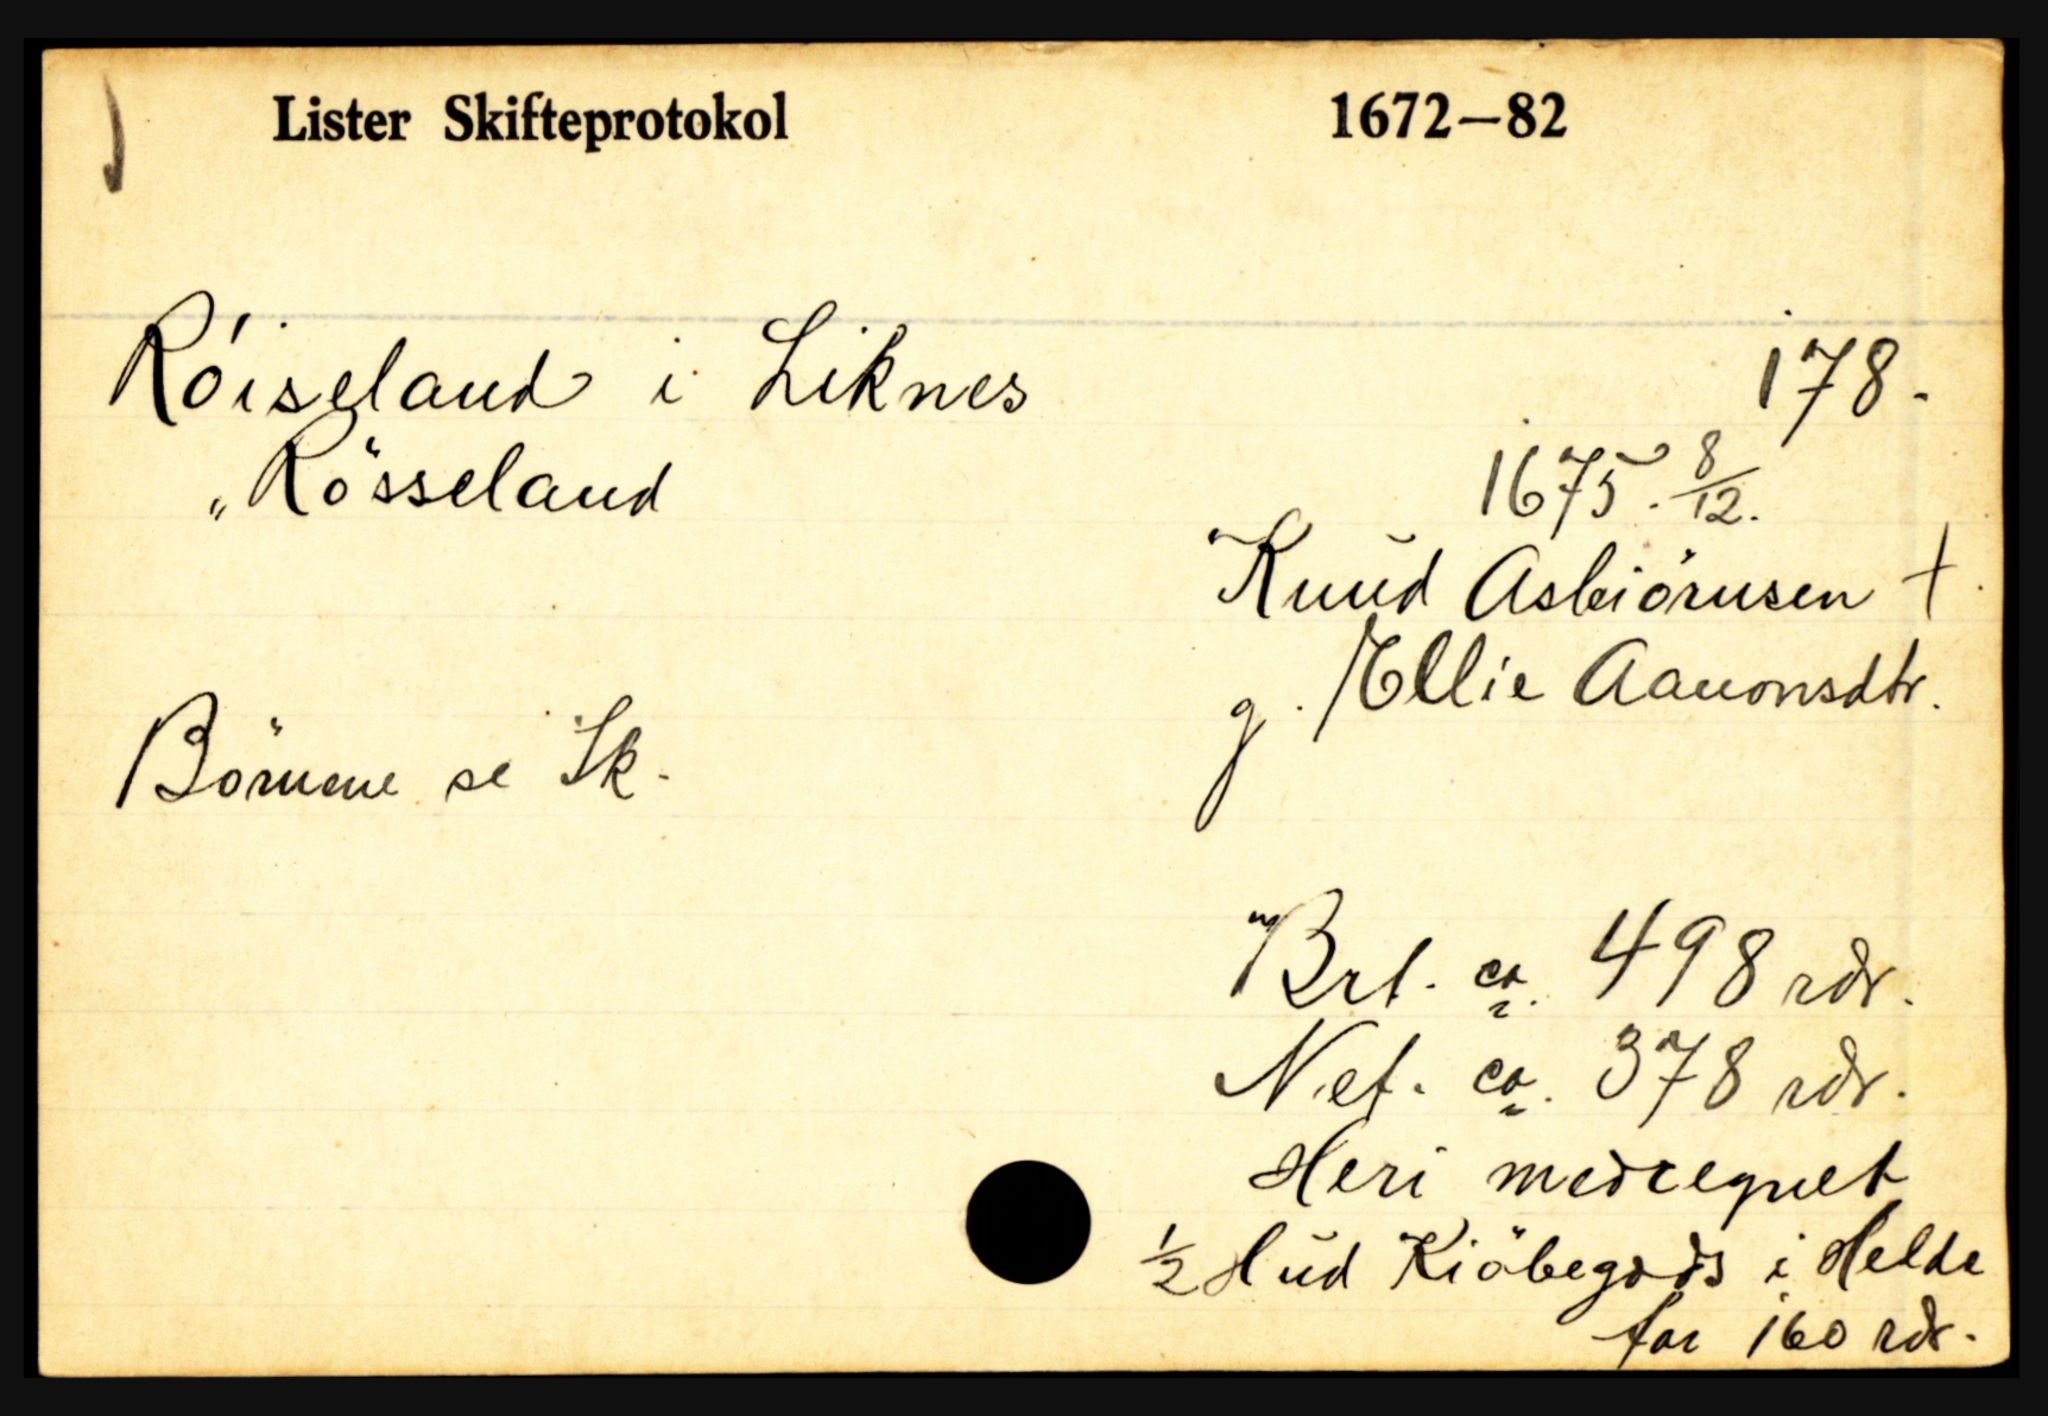 Lister Skifteprotokol 1672—82
Röiseland i Liknes 178.
„Rösseland
1675. 8/12.
Knud Asbiörnsen †
g. Ellie Aanonsdtr.
Börnene se Sk.
Brt. ca. 498 rdr.
Net. ca. 378 rdr.
Heri medregnet
1/2 Hud Kiöbegods i Helde
for 160 rdr.